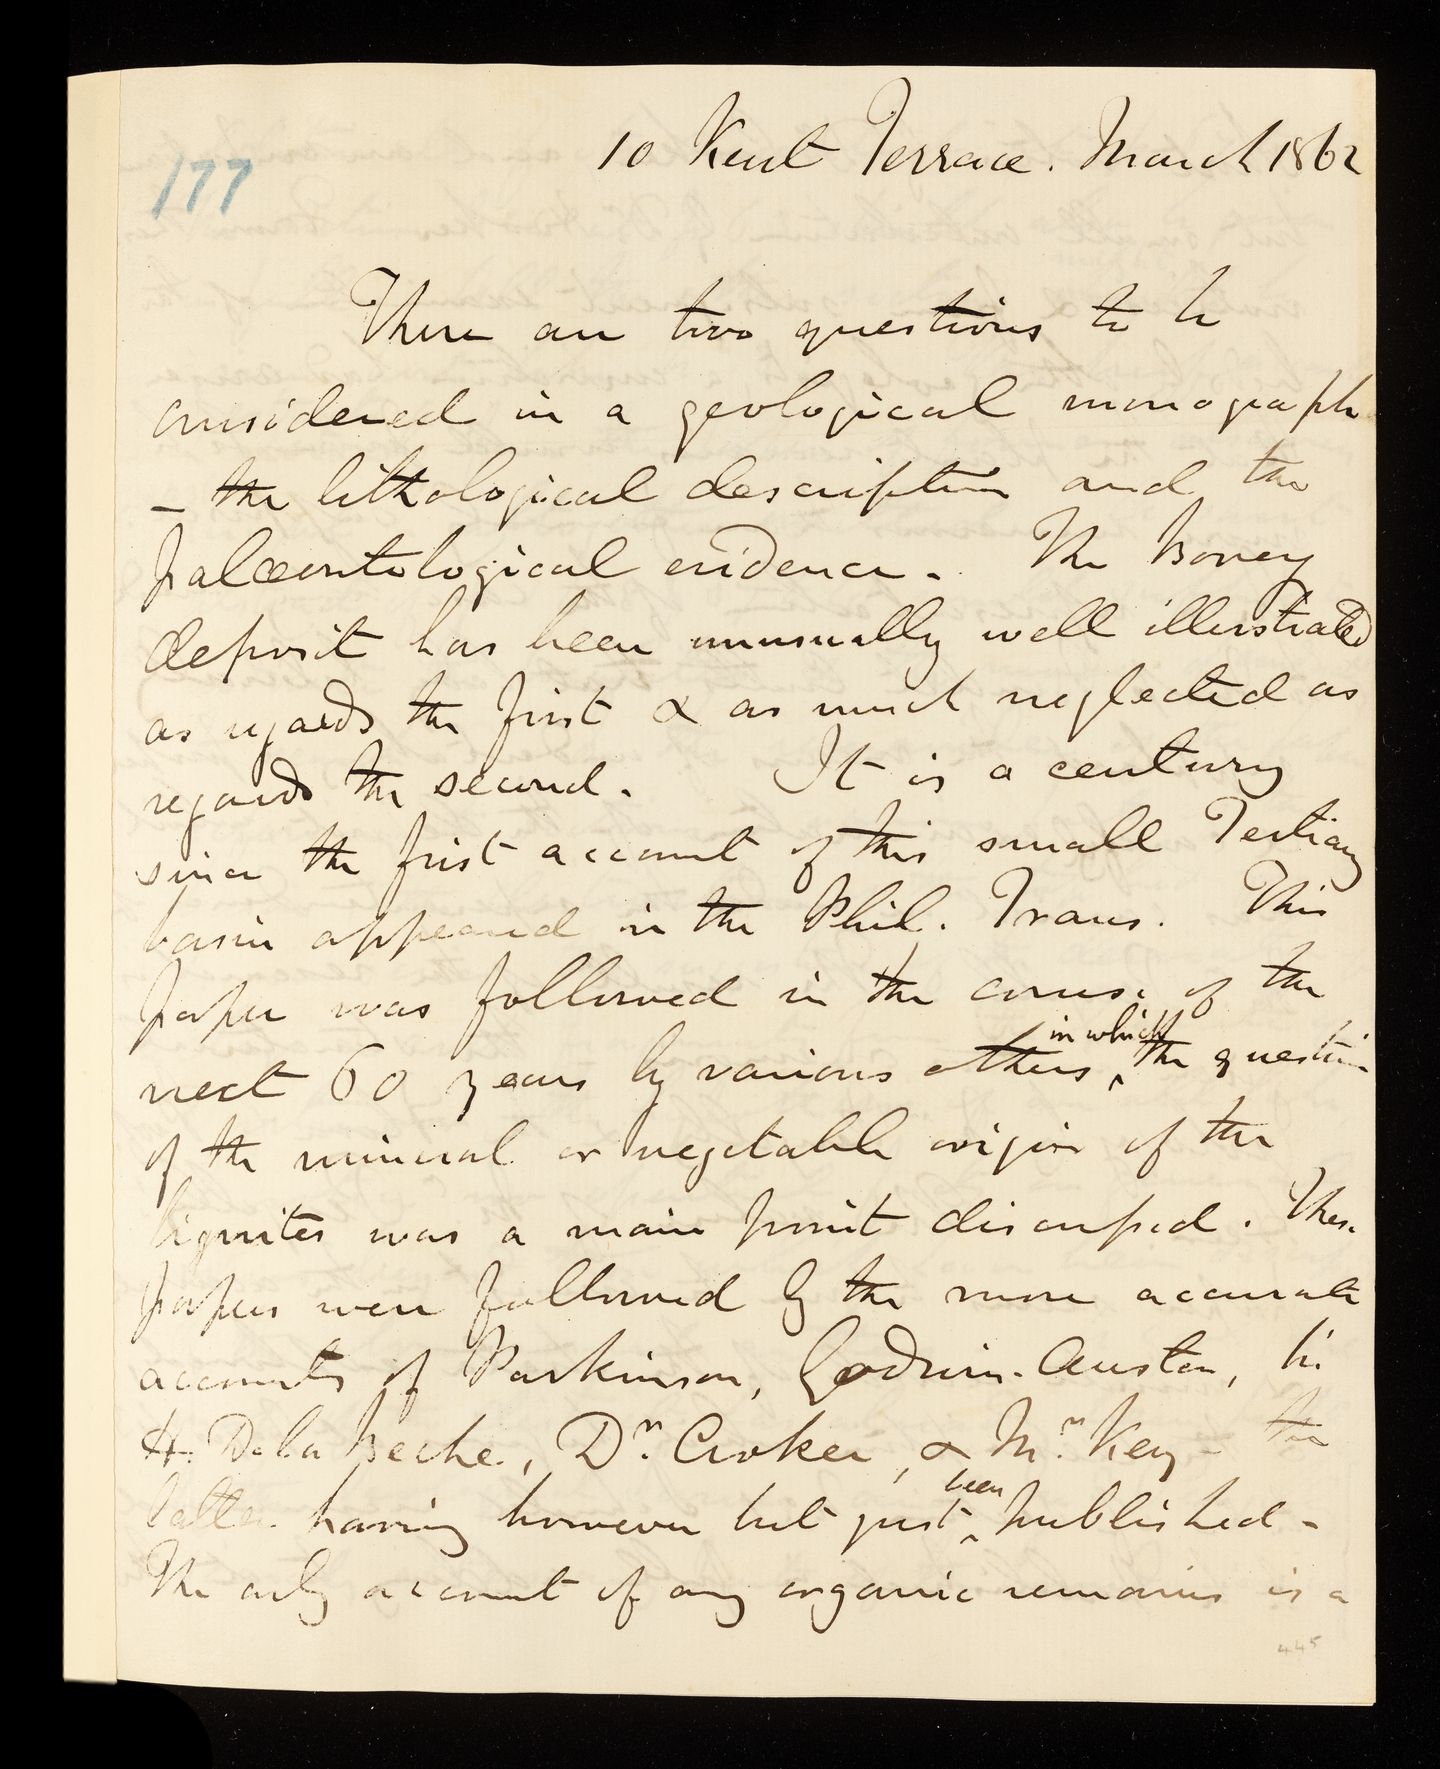 177
10 Kent Terrace. March 1862
There are two questions to be
considered in a geological monograph
– the lithological description and the
palæontological evidence. The Bovey
deposit has been unusually well illustrated
as regards the first & as much neglected as
regards the second. It is a century
since the first account of this small Tertiary
basin appeared in the Phil. Trans. This
paper was followed in the course of the
next 60 years by various others, in which the question
of the mineral or vegetable origin of the
lignites was a main point discussed. These
papers were followed by the more accurate
accounts of Parkinson, Godwin-Austen, Sir
H. De la Beche, Dr. Croker, & Mr. Key – the
latter having however but just been published –
The only account of any organic remains is a
445